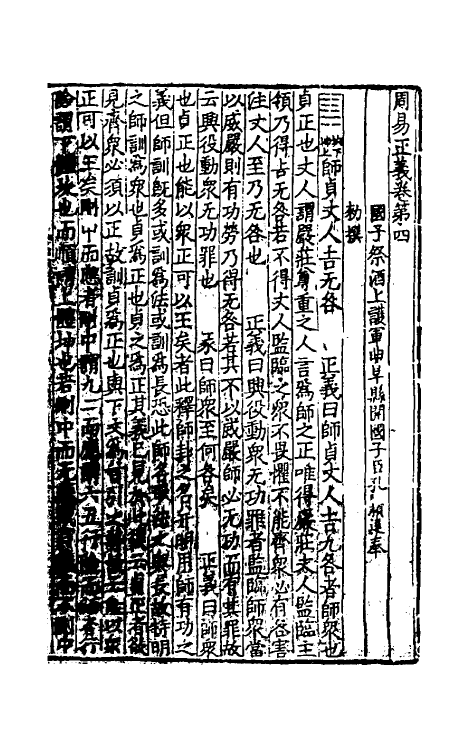 周易正義卷第四
國子祭酒上護軍曲阜縣開國子臣孔穎達奉
勑撰
師貞丈人吉无咎 正義曰師貞丈人吉无咎者師衆也
貞正也丈人謂嚴莊尊重之人言爲師之正唯得嚴莊丈人監臨主
領乃得吉无咎若不得丈人監臨之衆不畏懼不能齊衆必有咎害
注丈人至乃无咎也 正義曰興役動衆无功罪者監臨師衆當
以威嚴則有功勞乃得无咎若其不以威嚴師必无功而有其罪故
云興役動衆无功罪也 彖曰師衆至何咎矣 正義曰師衆
也貞正也能以衆正可以王矣者此釋師卦之名并明用師有功之
義但師訓旣多或訓爲法或訓爲長恐此師名取法之與長故特明
之師訓爲衆也貞爲正也貞之爲正其義已見於此復云貞正者欲
見齊衆必須以正故訓貞爲正也與下文爲首引之勢故云能以衆
正可以王矣剛中而應者剛中謂九二而應謂六五行險而順者行
險謂下體坎也而順謂上體坤也若剛中而无 剛中